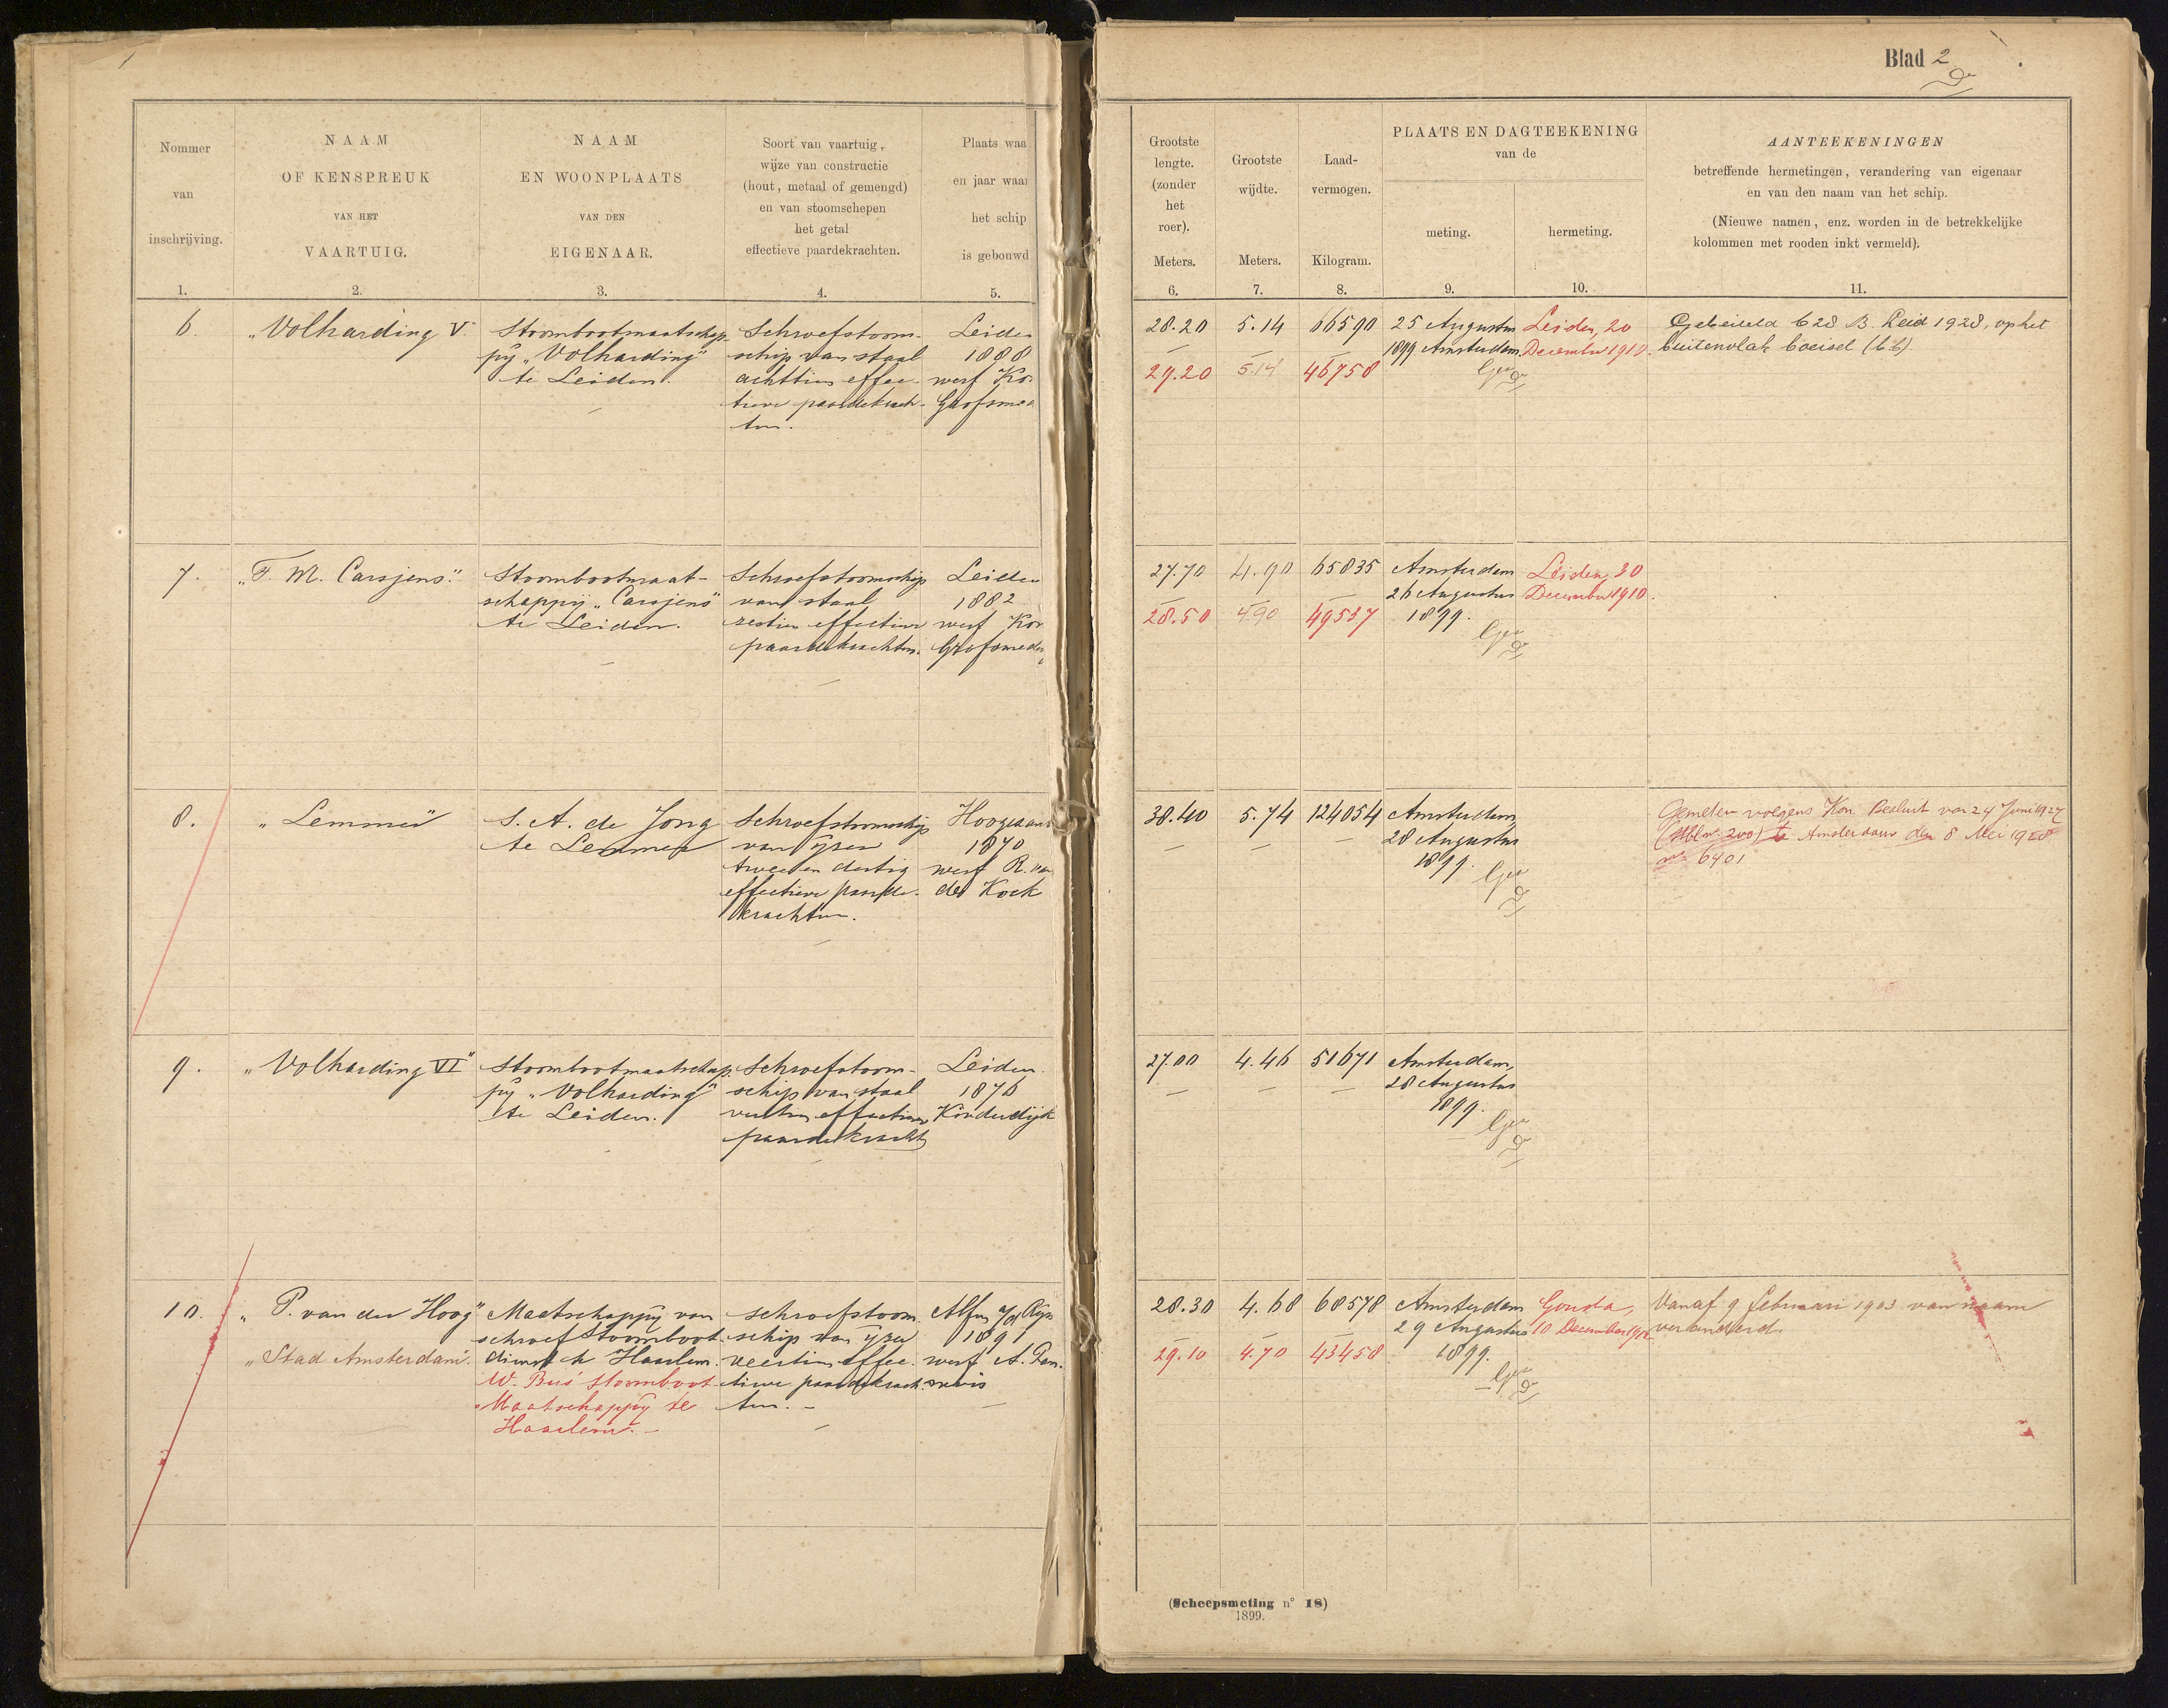 Blad 2
Nommer
van
inschrijving.
1.
NAAM
OF KENSPREUK
VAN HET
VAARTUIG.
2.
NAAM
EN WOONPLAATS
VAN DEN
EIGENAAR.
3.
Soort van vaartuig,
wijze van constructie
(hout, metaal of gemengd)
en van stoomschepen
het getal
effectieve paardekrachten.
4.
Plaats waa
en jaar waa
het schip
is gebouwd
5.
Grootste
lengte.
(zonder
het
roer).
Meters.
6.
Grootste
wijdte.
Meters.
7.
Laad-
vermogen.
Kilogram.
8.
PLAATS EN DAGTEEKENING
van de
meting.
9.
hermeting.
10.
AANTEEKENINGEN
betreffende hermetingen, verandering van eigenaar
en van den naam van het schip.
(Nieuwe namen, enz. worden in de betrekkelijke
kolommen met rooden inkt vermeld).
11.
6.
"Volharding V."
Stoombootmaatschap-
pij "Volharding"
te Leiden.
Schroefstoom-
schip van staal
achttien effec-
tieve paardekrach-
ten.
Leiden
1888
werf Ko
Grofsme
28.20
29.20
5.14
5.14
66590
46758
25 Augustus
1899 Amsterdam
Leiden, 20
December 1910.
Gebeiteld 628 B. Leid 1928, op het
buitenvlak boeisel (b.b).
7.
"F. M. Carsjens."
Stoombootmaat-
schappij "Carsjens"
te Leiden.
Schroefstoomschip
van staal
zestien effectieve
paardekrachten.
Leiden
1882
werf Kor
Grofsmede
27.70
28.50
4.90
4.90
65835
49537
Amsterdam
26 Augustus
1899.
Leiden, 30
December 1910.
8.
"Lemmer"
S. A. de Jong
te Lemmer
Schroefstoomschip
van ijzer
twee en dertig
effectieve paarde-
krachten.
Hoogezand
1870
werf R. van
der Kock
38.40
5.74
124054
Amsterdam,
28 Augustus
1899.
Gemeten volgens Kon. Besluit van 24 Juni 1927
(Stbl no 200) te Amsterdam den 8 Mei 1928
no 6401
9.
"Volharding VI"
Stoombootmaatschap-
pij "Volharding"
te Leiden.
Schroefstoom-
schip van staal
veertien effectieve
paardekracht
Leiden.
1876
Kinderdijk
27.00
4.46
51671
Amsterdam,
28 Augustus
1899.
10.
"P. van der Hoog"
"Stad Amsterdam".
Maatschappij van
schroefstoomboot-
dienst te Haarlem.
W. Bus' Stoomboot
Maatschappij te
Haarlem.
Schroefstoom-
schip van ijzer
veertien effec-
tieve paardekrach-
ten.
Alfen a/d Rijn
1891
werf A.
28.30
29.10
4.68
4.70
68578
43458
Amsterdam
29 Augustus
1899.
Gouda,
10 December
Vanaf 9 februari 1903 van naam
veranderd.
(Scheepsmeting no 18)
1899.